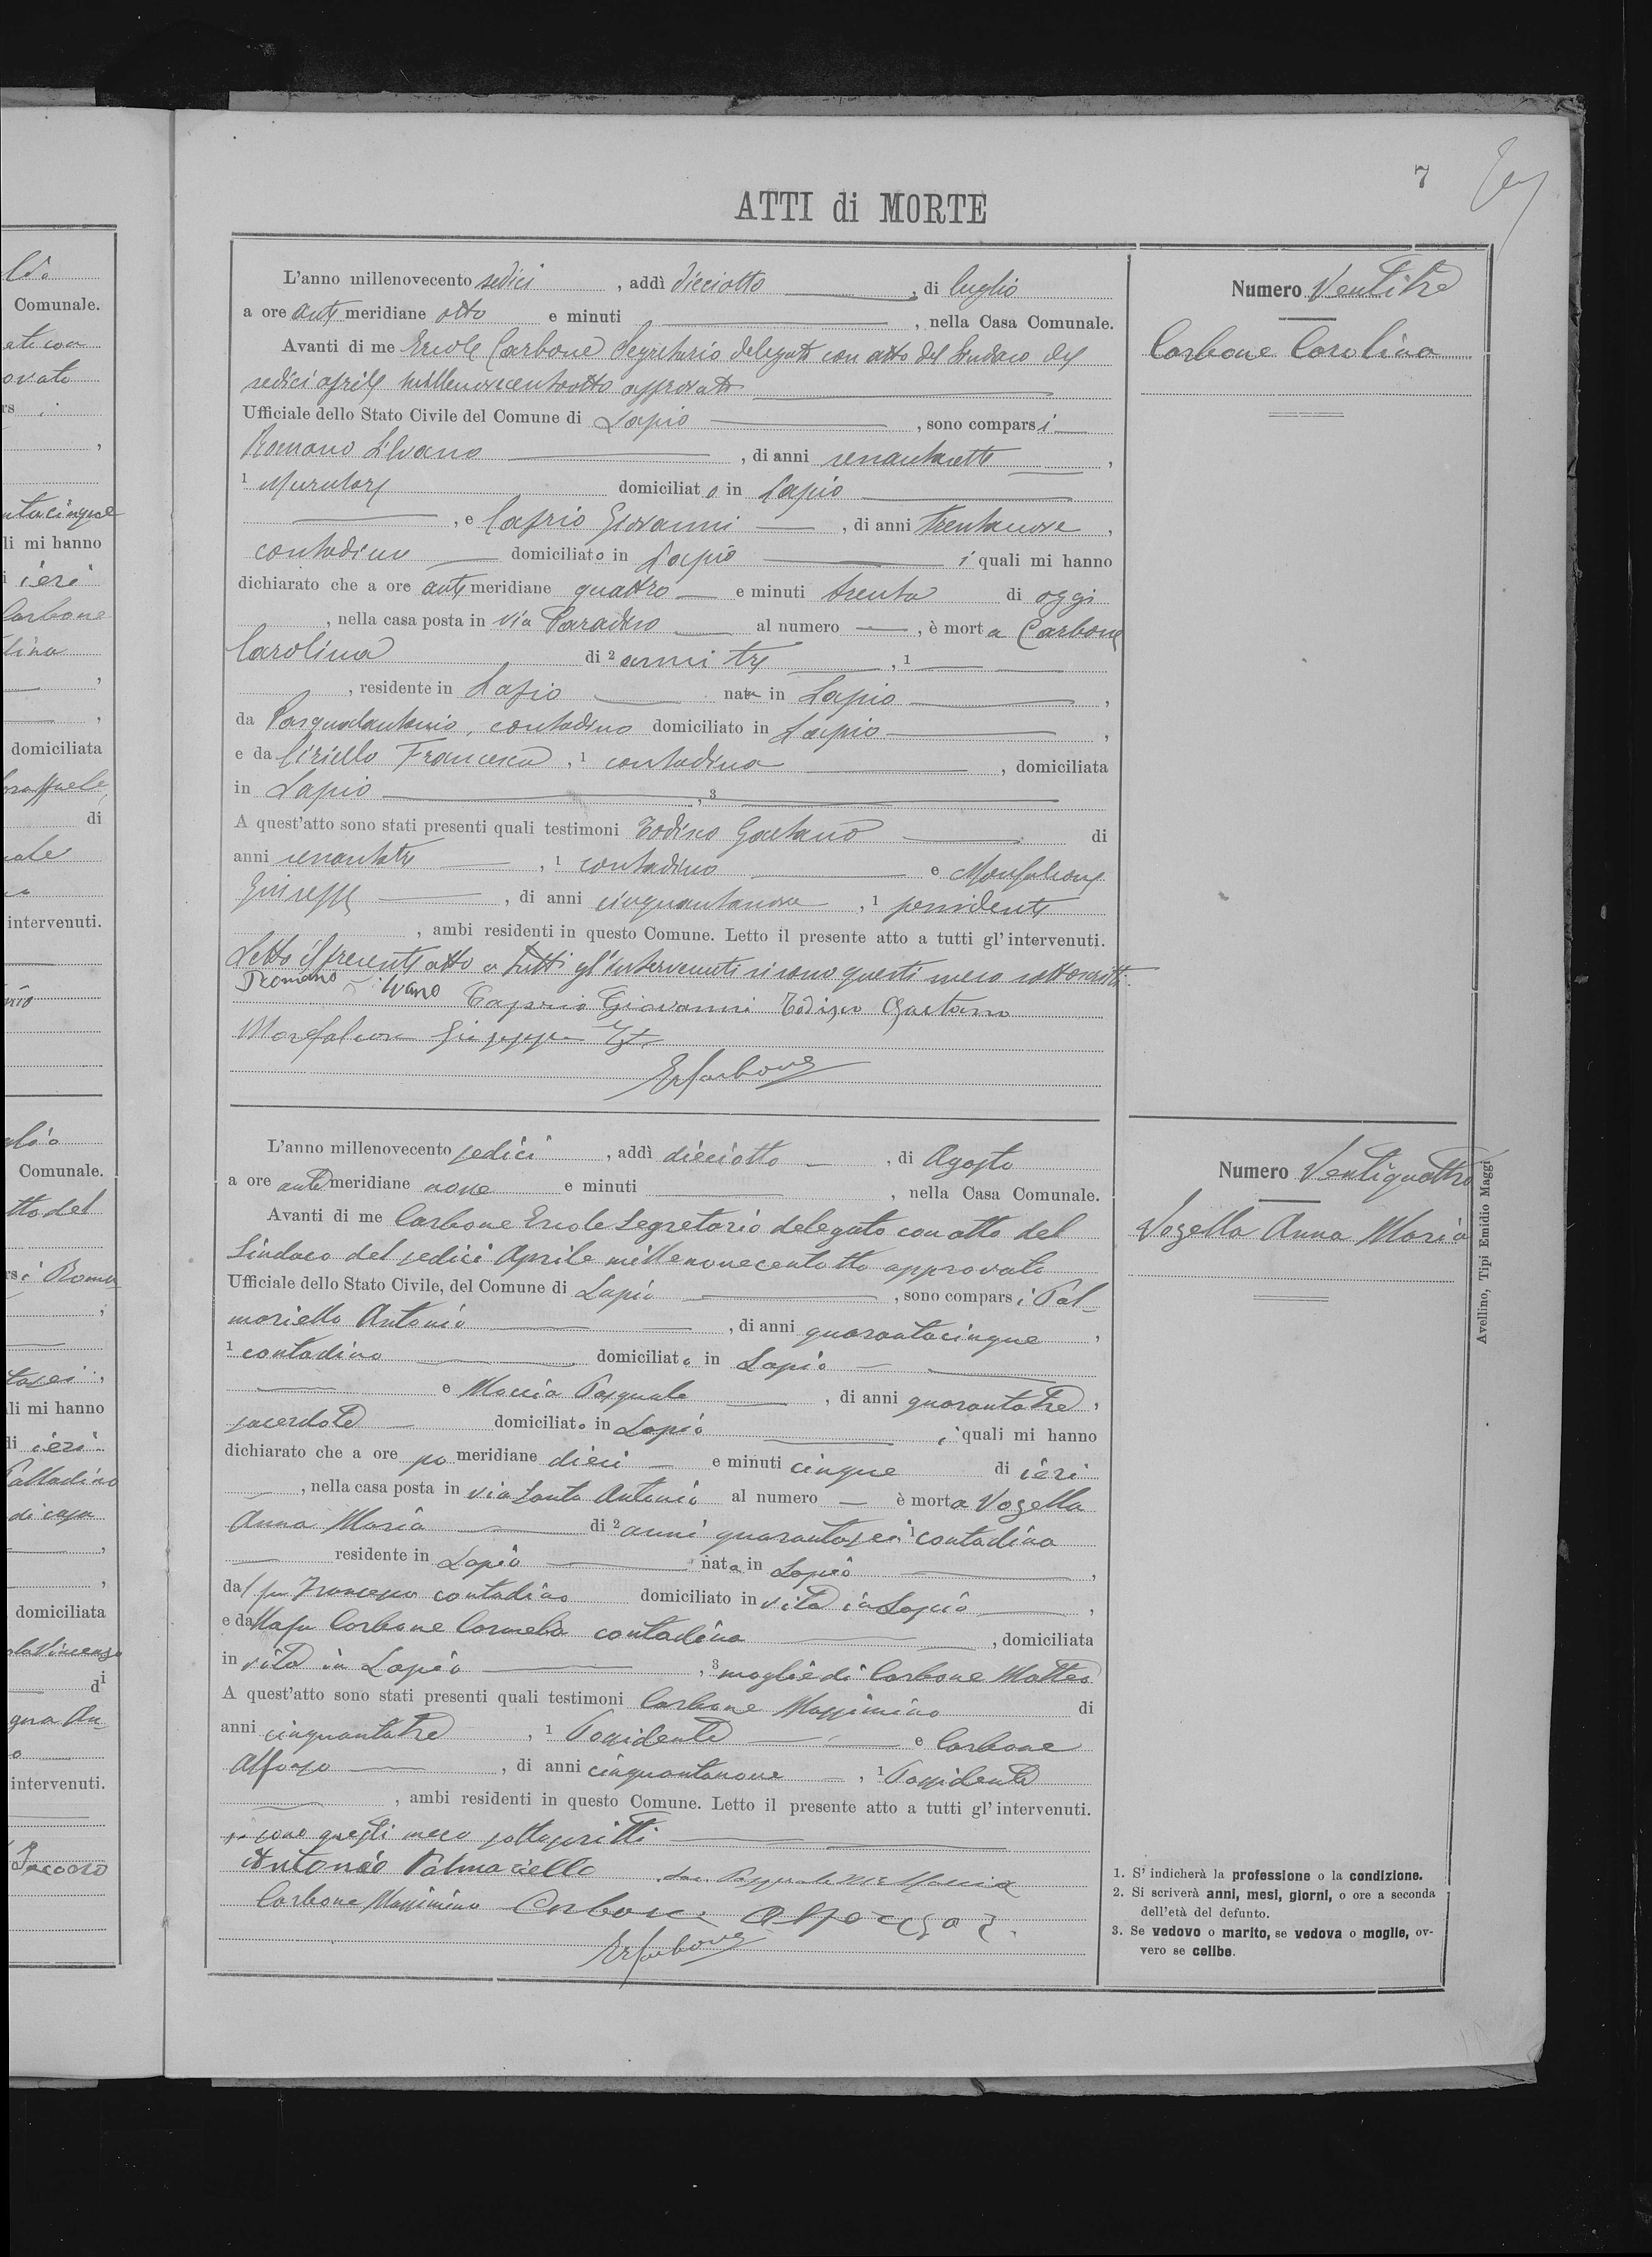 7
ATTI di MORTE
L'anno millenovecento sedici, addì dieciotto, di luglio
a ore antimeridiane otto e minuti, nella Casa Comunale.
Avanti di me Ercole Carbone Segretario delegato con atto del Sindaco del
sedici aprile millenovecentootto approvato
Ufficiale dello Stato Civile del Comune di Lapio, sono comparsi
Romano Silvano, di anni sessantasette,
1 Muratore domiciliato in Lapio
, e Caprio Giovanni, di anni trentanove,
contadino domiciliato in Lapio i quali mi hanno
dichiarato che a ore antimeridiane quattro e minuti trenta di oggi
, nella casa posta in via Paradiso al numero, è morta Carbone
Carolina di 2 anni tre, 1
, residente in Lapio nata in Lapio,
da Pasqualantonio, contadino domiciliato in Lapio,
e da Ciriello Francesca, 1 contadina, domiciliata
in Lapio, 3
A quest'atto sono stati presenti quali testimoni Todisco Gaetano di
anni sessantatre, 1 contadino e Monfalcone
Giuseppe, di anni cinquantanove, 1 possidente
, ambi residenti in questo Comune. Letto il presente atto a tutti gl'intervenuti.
Letto il presente atto a tutti gl'intervenuti si sono questi meco sottoscritti.
Romano Silvano Caprio Giovanni Todisco Gaetano
Monfalcone Giuseppe T.
ErCarbone
Numero Ventitre
Carbone Carolina
L'anno millenovecento sedici, addì dieciotto, di Agosto
a ore antimeridiane nove e minuti, nella Casa Comunale.
Avanti di me Carbone Ercole Segretario delegato con atto del
Sindaco del sedici Aprile millenovecentotto approvato
Ufficiale dello Stato Civile, del Comune di Lapio, sono comparsi Pal-
mariello Antonio, di anni quarantacinque,
1 contadino domiciliato in Lapio
e Maccia Pasquale, di anni quarantatre,
sacerdote domiciliato in Lapio, i quali mi hanno
dichiarato che a ore pomeridiane dieci e minuti cinque di ieri
, nella casa posta in via Santo Antonio al numero è morta Vozella
Anna Maria di 2 anni quarantasei 1 contadina
residente in Lapio nata in Lapio,
dal fu Francesco contadino domiciliato in vita in Lapio,
e dalla fu Carbone Carmela contadina, domiciliata
in vita in Lapio, 3 moglie di Carbone Matteo
A quest'atto sono stati presenti quali testimoni Carbone Massimino di
anni cinquantatre, 1 Possidente e Carbone
Alfonso, di anni cinquantanove, 1 Possidente
, ambi residenti in questo Comune. Letto il presente atto a tutti gl'intervenuti.
si sono questi meco sottoscritti
Antonio Palmariello Don Pasquale Maccia
Carbone Massimino Carbone Alfonso
ErCarbone
Numero Ventiquattro
Vozella Anna Maria
Avellino, Tipi Emidio Maggi
1. S'indicherà la professione o la condizione.
2. Si scriverà anni, mesi, giorni, o ore a seconda
dell'età del defunto.
3. Se vedovo o marito, se vedova o moglie, ov-
vero se celibe.